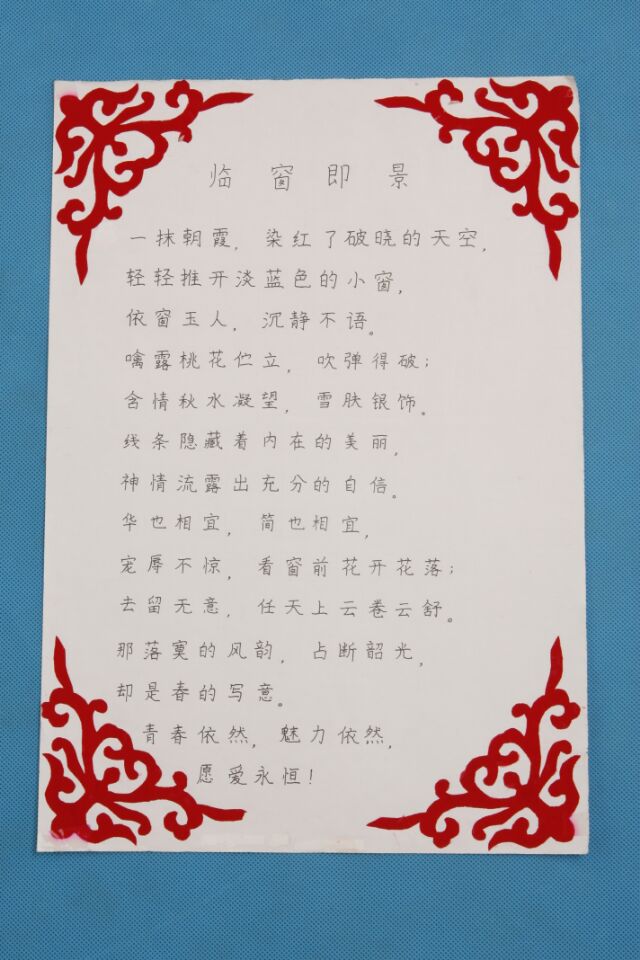 临窗即景
一抹朝霞，染红了破晓的天空，
轻轻推开淡蓝色的小窗，
依窗玉人，沉静不语。
噙露桃花伫立，吹弹得破；
含情秋水凝望，雪肤银饰。
线条隐藏着内在的美丽，
神情流露出充分的自信。
华也相宜，简也相宜，
宠辱不惊，看窗前花开花落；
去留无意，任天上云卷云舒。
那落寞的风韵，占断韶光，
却是春的写意。
青春依然，魅力依然，
愿爱永恒！